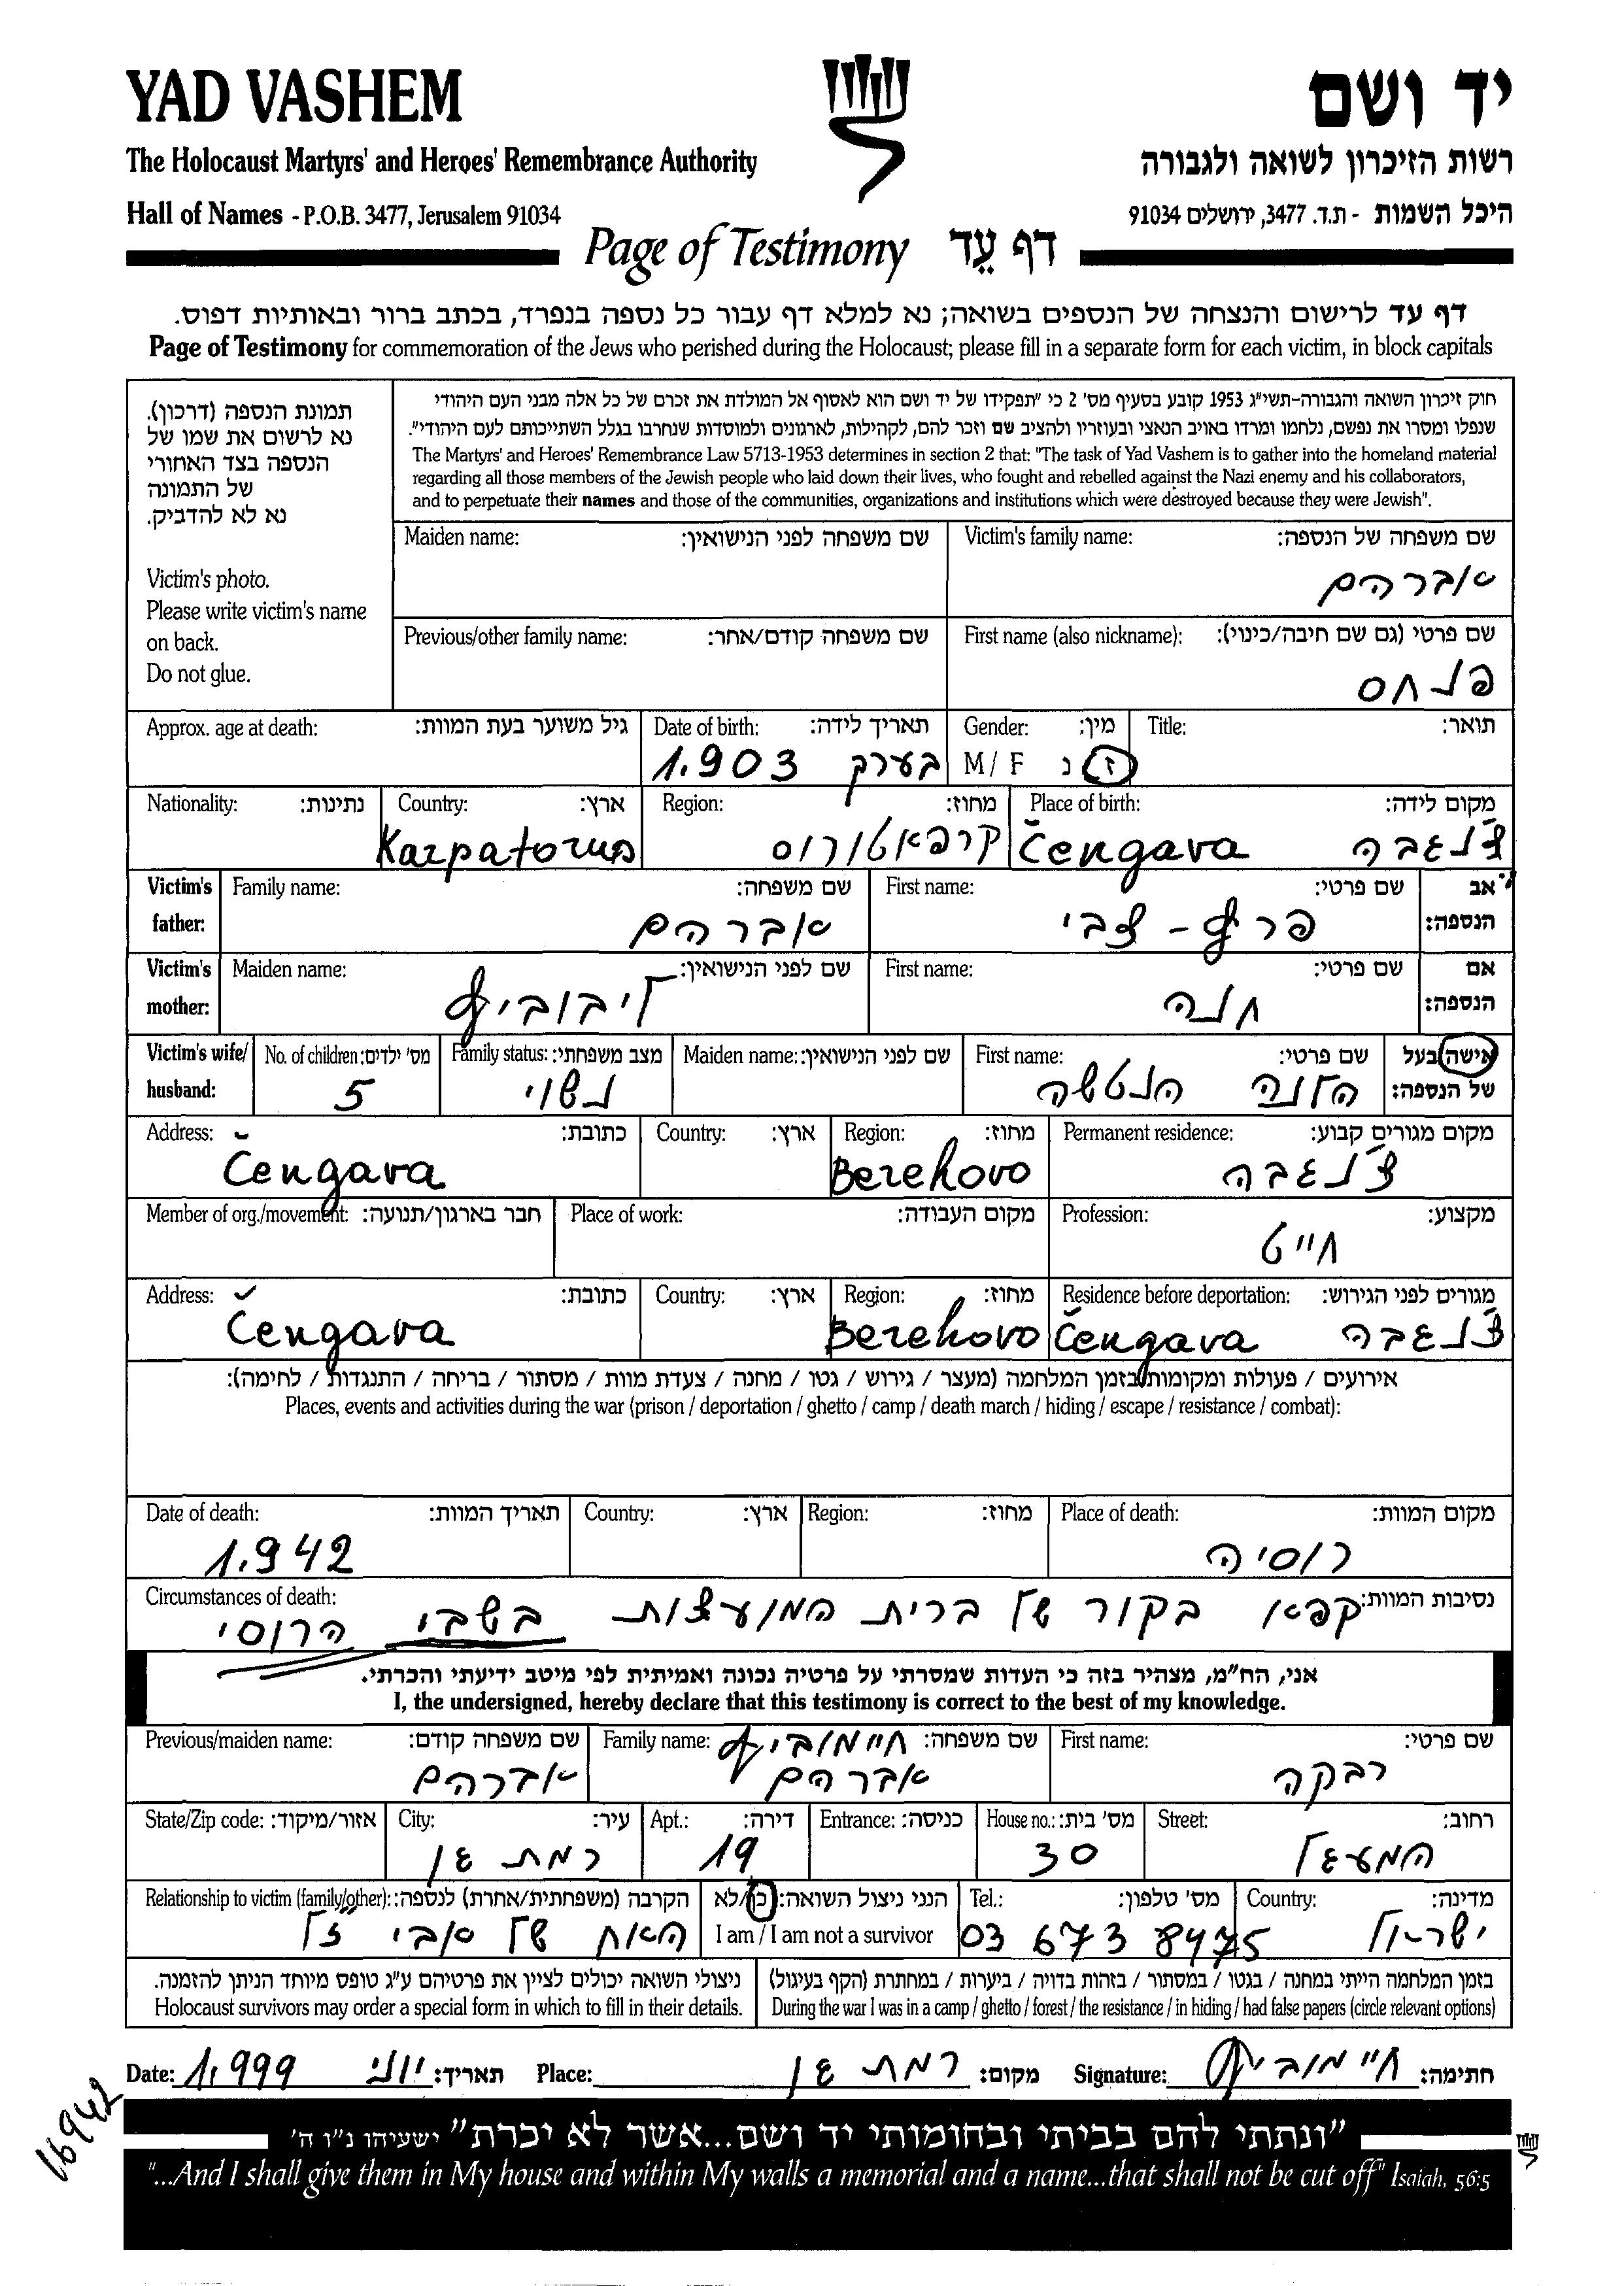 YAD VASHEM
יד ושם
The Holocaust Martyrs' and Heroes' Remembrance Authority
רשות הזיכרון לשואה ולגבורה
Hall of Names - P.O.B. 3477, Jerusalem 91034
היכל השמות - ת.ד. 3477, ירושלים 91034
Page of Testimony דף עֵד
דף עד לרישום והנצחה של הנספים בשואה; נא למלא דף עבור כל נספה בנפרד, בכתב ברור ובאותיות דפוס.
Page of Testimony for commemoration of the Jews who perished during the Holocaust; please fill in a separate form for each victim, in block capitals
תמונת הנספה (דרכון).
נא לרשום את שמו של
הנספה בצד האחורי
של התמונה
נא לא להדביק.
Victim's photo.
Please write victim's name
on back.
Do not glue.
חוק זיכרון השואה והגבורה-תשי"ג 1953 קובע בסעיף מס' 2 כי "תפקידו של יד ושם הוא לאסוף אל המולדת את זכרם של כל אלה מבני העם היהודי
שנפלו ומסרו את נפשם, נלחמו ומרדו באויב הנאצי ובעוזריו ולהציב שם וזכר להם, לקהילות, לארגונים ולמוסדות שנחרבו בגלל השתייכותם לעם היהודי".
The Martyrs' and Heroes' Remembrance Law 5713-1953 determines in section 2 that: "The task of Yad Vashem is to gather into the homeland material
regarding all those members of the Jewish people who laid down their lives, who fought and rebelled against the Nazi enemy and his collaborators,
and to perpetuate their names and those of the communities, organizations and institutions which were destroyed because they were Jewish".
Victim's family name: שם משפחה של הנספה:
אברהם
Maiden name: שם משפחה לפני הנישואין:
First name (also nickname): שם פרטי (גם שם חיבה/כינוי):
פנחס
Previous/other family name: שם משפחה קודם/אחר:
Title: תואר:
Gender: מין:
M / F ז נ
Date of birth: תאריך לידה:
בערך 1.903
Approx. age at death: גיל משוער בעת המוות:
Place of birth: מקום לידה:
Čengava צ'נגבה
Region: מחוז:
קרפאטורוס
Country: ארץ:
Karpatorus
Nationality: נתינות:
Victim's father: אב הנספה:
First name: שם פרטי:
פרץ - צבי
Family name: שם משפחה:
אברהם
Victim's mother: אם הנספה:
First name: שם פרטי:
חנה
Maiden name: שם לפני הנישואין:
ליבוביץ
Victim's wife/husband: אישה/בעל של הנספה:
First name: שם פרטי:
Maiden name: שם לפני הנישואין:
Family status: מצב משפחתי:
נשוי
No. of children: מס' ילדים:
5
Permanent residence: מקום מגורים קבוע:
צ'נגבה
Region: מחוז:
Berehovo
Country: ארץ:
Address: כתובת:
Čengava
Profession: מקצוע:
חייט
Place of work: מקום העבודה:
Member of org./movement: חבר בארגון/תנועה:
Residence before deportation: מגורים לפני הגירוש:
Čengava צ'נגבה
Region: מחוז:
Berehovo
Country: ארץ:
Address: כתובת:
Čengava
אירועים / פעולות ומקומות בזמן המלחמה (מעצר / גירוש / גטו / מחנה / צעדת מוות / מסתור / בריחה / התנגדות / לחימה):
Places, events and activities during the war (prison / deportation / ghetto / camp / death march / hiding / escape / resistance / combat):
Place of death: מקום המוות:
רוסיה
Region: מחוז:
Country: ארץ:
Date of death: תאריך המוות:
1.942
Circumstances of death: נסיבות המוות:
קפא בקור של ברית המועצות בשבי
הרוסי
אני, הח"מ, מצהיר בזה כי העדות שמסרתי על פרטיה נכונה ואמיתית לפי מיטב ידיעתי והכרתי.
I, the undersigned, hereby declare that this testimony is correct to the best of my knowledge.
First name: שם פרטי:
רבקה
Family name: שם משפחה:
חיימוביץ
אברהם
Previous/maiden name: שם משפחה קודם:
אברהם
Street: רחוב:
המעגל
House no.: מס' בית:
30
Entrance: כניסה:
Apt.: דירה:
19
City: עיר:
רמת גן
State/Zip code: אזור/מיקוד:
Country: מדינה:
ישראל
Tel.: מס' טלפון:
03 673 8475
הנני ניצול השואה: כן/לא
I am / I am not a survivor
Relationship to victim (family/other): הקרבה (משפחתית/אחרת) לנספה:
האח של אבי ז"ל
בזמן המלחמה הייתי במחנה / בגטו / במסתור / בזהות בדויה / ביערות / במחתרת (הקף בעיגול)
During the war I was in a camp / ghetto / forest / the resistance / in hiding / had false papers (circle relevant options)
ניצולי השואה יכולים לציין את פרטיהם ע"ג טופס מיוחד הניתן להזמנה.
Holocaust survivors may order a special form in which to fill in their details.
Date: 1.999 יוני תאריך: Place: רמת גן מקום: Signature: חיימוביץ חתימה:
16942
"ונתתי להם בביתי ובחומותי יד ושם...אשר לא יכרת" ישעיהו נ"ו ה'
"...And I shall give them in My house and within My walls a memorial and a name...that shall not be cut off" Isaiah, 56:5